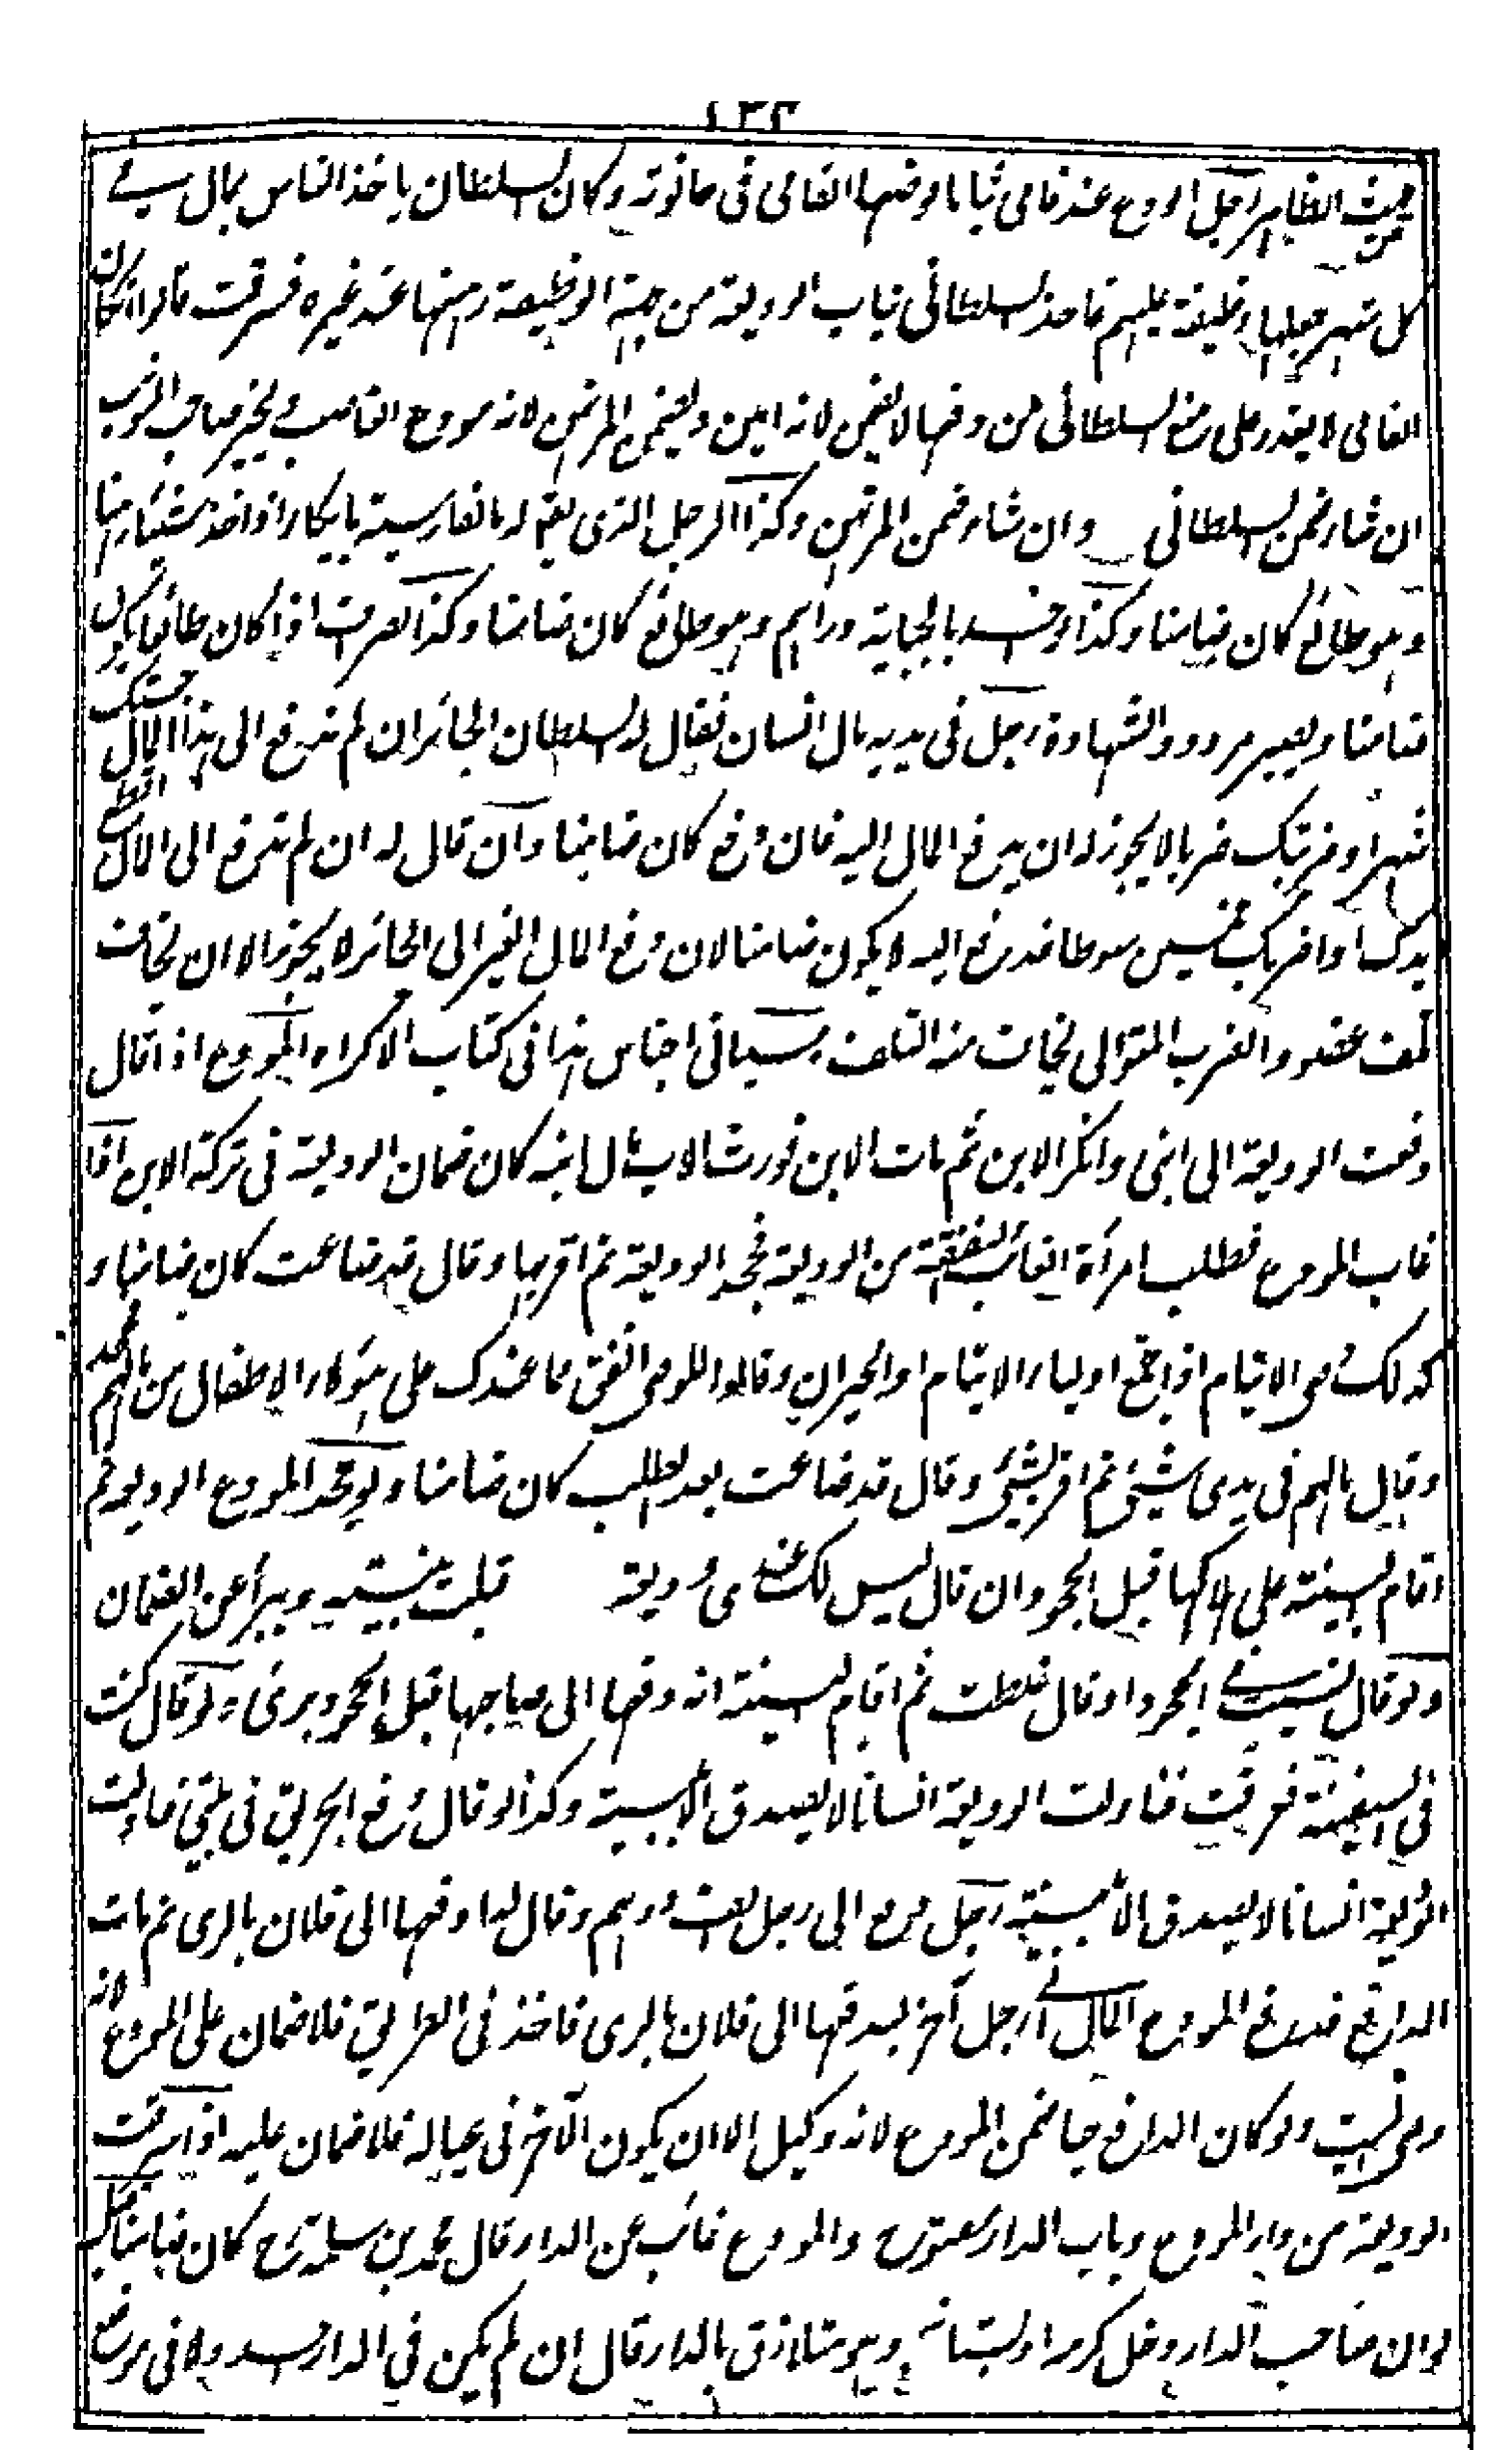 ١٣٣
من حيث الظاهر رجل اودع عند فامى ثيابا فوضعها الفامى فى حانوته وكان السلطان ياخذ الناس بمال فى
كل شهر جعلها وظيفة عليهم فاخذ السلطانى ثياب الوديعة من جهة الوظيفة ورهنها عند غيره فسرقت قالوا ان كان
الفامى لا يقدر على منع السلطانى من دفعها لا يضمن لانه امين ويضمن المرتهن لانه مودع الغاصب ويخير صاحب الثوب
ان شاء ضمن السلطانى وان شاء ضمن المرتهن وكذا الرجل الذى يقال له بالفارسية پايكار اذا اخذ شيئا رهنا
وهو طائع كان ضامنا وكذا لو اخذ بالجباية دراهم وهو طائع كان ضامنا وكذا الصراف اذا كان طائعا يكون
ضامنا ويصير مردود الشهادة رجل فى يديه مال انسان فقال له السلطان الجائر ان لم تدفع الى هذا المال حبستك
شهرا او ضربتك ضربا لا يجوز له ان يدفع المال اليه فان دفع كان ضامنا وان قال له ان لم تدفع الى المال اقطع
يدك او اضربك خمسين سوطا فدفع اليه لا يكون ضامنا لان دفع المال الغير الى الجائر لا يجوز الا ان يخاف
تلف عضو والضرب المتوالى يخاف منه التلف وسياتى اجناس هذا فى كتاب الاكراه المودع اذا قال
دفعت الوديعة الى ابنى وانكر الابن ثم مات الابن فورث الاب مال ابنه كان ضمان الوديعة فى تركة الابن اذا
غاب المودع فطلب امرأة الغائب النفقة من الوديعة فجحد الوديعة ثم اقر بها وقال قد ضاعت كان ضامنا و
كذلك وصى الايتام اذا اجتمع اولياء الايتام او الجيران وقالوا للوصى انفق مما عندك على هؤلاء الاطفال من مالهم فجحد
وقال مالهم فى يدى شيئ ثم اقر بشيئ وقال قد ضاعت بعد الطلب كان ضامنا ولو جحد المودع الوديعة ثم
اقام البينة على هلاكها قبل الجحود وان قال ليس لك عندى وديعة قبلت بينته ويبرأ عن الضمان
ولو قال نسيت فى الجحود او قال غلطت ثم اقام البينة انه دفعها الى صاحبها قبل الجحود برئ ولو قال كنت
فى السفينة فغرقت فناولت الوديعة انسانا لا يصدق الا ببينة وكذا لو قال وقع الحريق فى بيتى فناولت
الوديعة انسانا لا يصدق الا ببينة رجل دفع الى رجل الف درهم وقال له ادفعها الى فلان بالرى ثم مات
الدافع فدفع المودع المال الى رجل آخر ليدفعها الى فلان بالرى فاخذ فى الطريق فلا ضمان على المودع لانه
وصى الميت ولو كان الدافع حيا ضمن المودع لانه وكيل الا ان يكون الآخر فى عياله فلا ضمان عليه اذا سرقت
الوديعة من دار المودع وباب الدار مفتوح والمودع غائب عن الدار قال محمد بن سلمة رح كان ضامنا قيل
لو ان صاحب الدار دخل كرمه او بستانه وهو متلازق بالدار قال ان لم يكن فى الدار احد ولا فى موضع